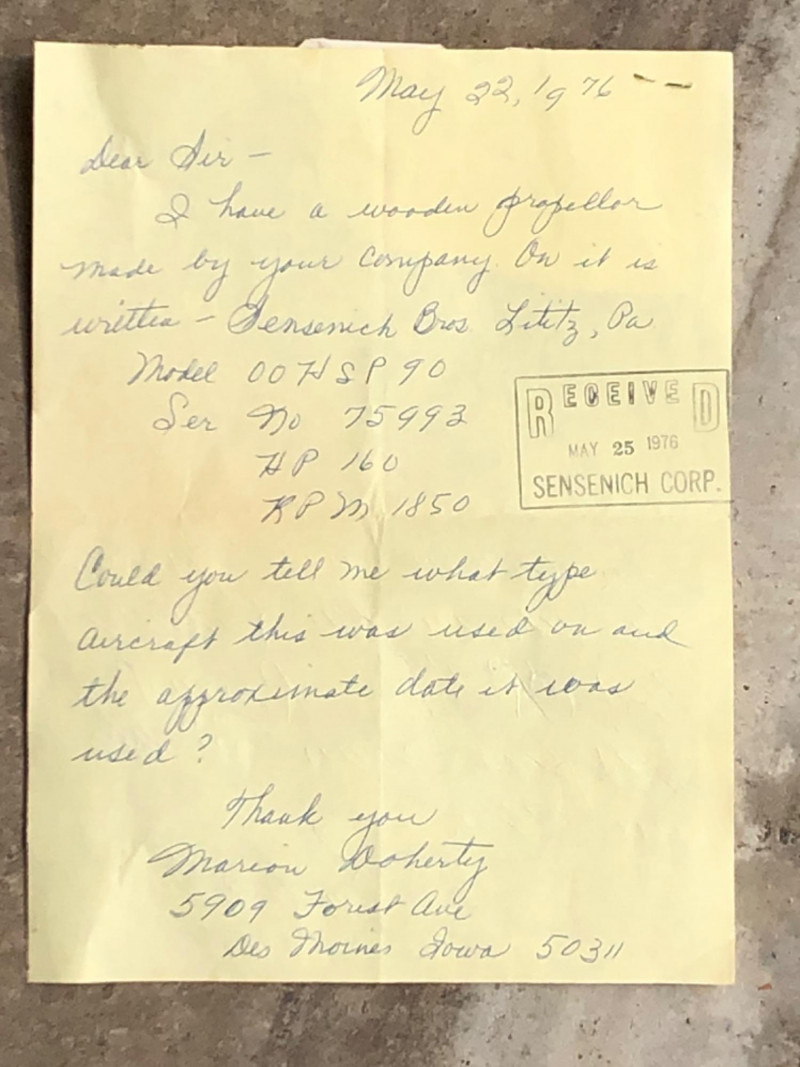 May 22, 1976
Dear Sir -
I have a wooden propellor
made by your company. On it is
written - Sensenich Bros. Lititz, Pa
Model 00HSP90
Ser No 75993
HP 160
RPM 1850
RECEIVED
MAY 25 1976
SENSENICH CORP.
Could you tell me what type
aircraft this was used on and
the approximate date it was
used?
Thank you
Marion Doherty
5909 Forest Ave
Des Moines Iowa 50311